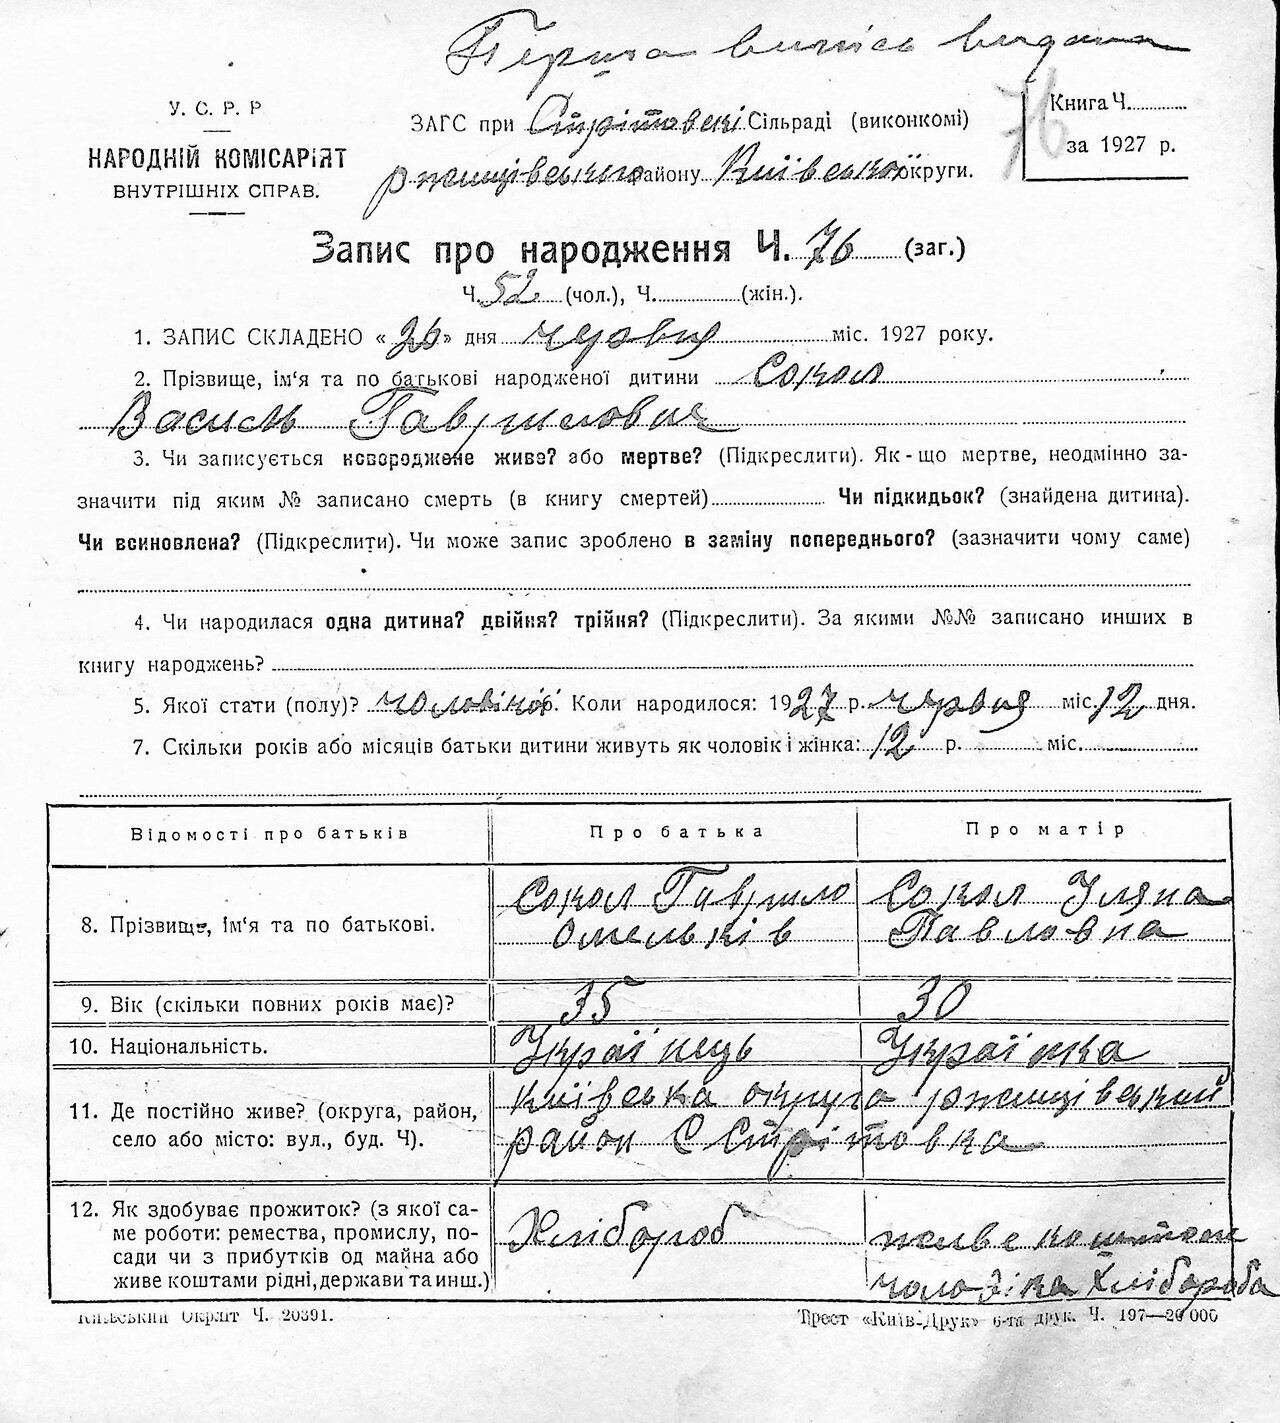 Перша випись видана
У. С. Р. Р
НАРОДНІЙ КОМІСАРІЯТ
ВНУТРІШНІХ СПРАВ.
ЗАГС при Стрітовскі Сільраді (виконкомі)
ржищівського району Київської округи.
76
Книга Ч.
за 1927 р.
Запис про народження Ч. 76 (заг.)
Ч. 52 (чол.), Ч. (жін.).
1. ЗАПИС СКЛАДЕНО « 26 » дня червня міс. 1927 року.
2. Прізвище, ім'я та по батькові народженої дитини Сокол
Василь Гаврилович
3. Чи записується новороджене живе? або мертве? (Підкреслити). Як-що мертве, неодмінно за-
значити під яким № записано смерть (в книгу смертей) Чи підкидьок? (знайдена дитина).
Чи всиновлена? (Підкреслити). Чи може запис зроблено в заміну попереднього? (зазначити чому саме)
4. Чи народилася одна дитина? двійня? трійня? (Підкреслити). За якими №№ записано инших в
книгу народжень?
5. Якої стати (полу)? чоловічої. Коли народилося: 1927 р. червня міс. 12 дня.
7. Скільки років або місяців батьки дитини живуть як чоловік і жінка: 12 р. міс.
Відомості про батьків
Про батька
Про матір
8. Прізвище, ім'я та по батькові.
Сокол Гаврило
Омельків
Сокол Уляна
Павловна
9. Вік (скільки повних років має)?
35
30
10. Національність.
Українець
Українка
11. Де постійно живе? (округа, район,
село або місто: вул., буд. Ч).
київська округа ржищівський
район С Стрітовка
12. Як здобуває прожиток? (з якої са-
ме роботи: ремества, промислу, по-
сади чи з прибутків од майна або
живе коштами рідні, держави та инш.)
Хлібороб
живе коштом
чоловіка Хлібороба
Київський Окрліт Ч. 20391.
Трест «Київ-Друк» 6-та друк. Ч. 197—20 000